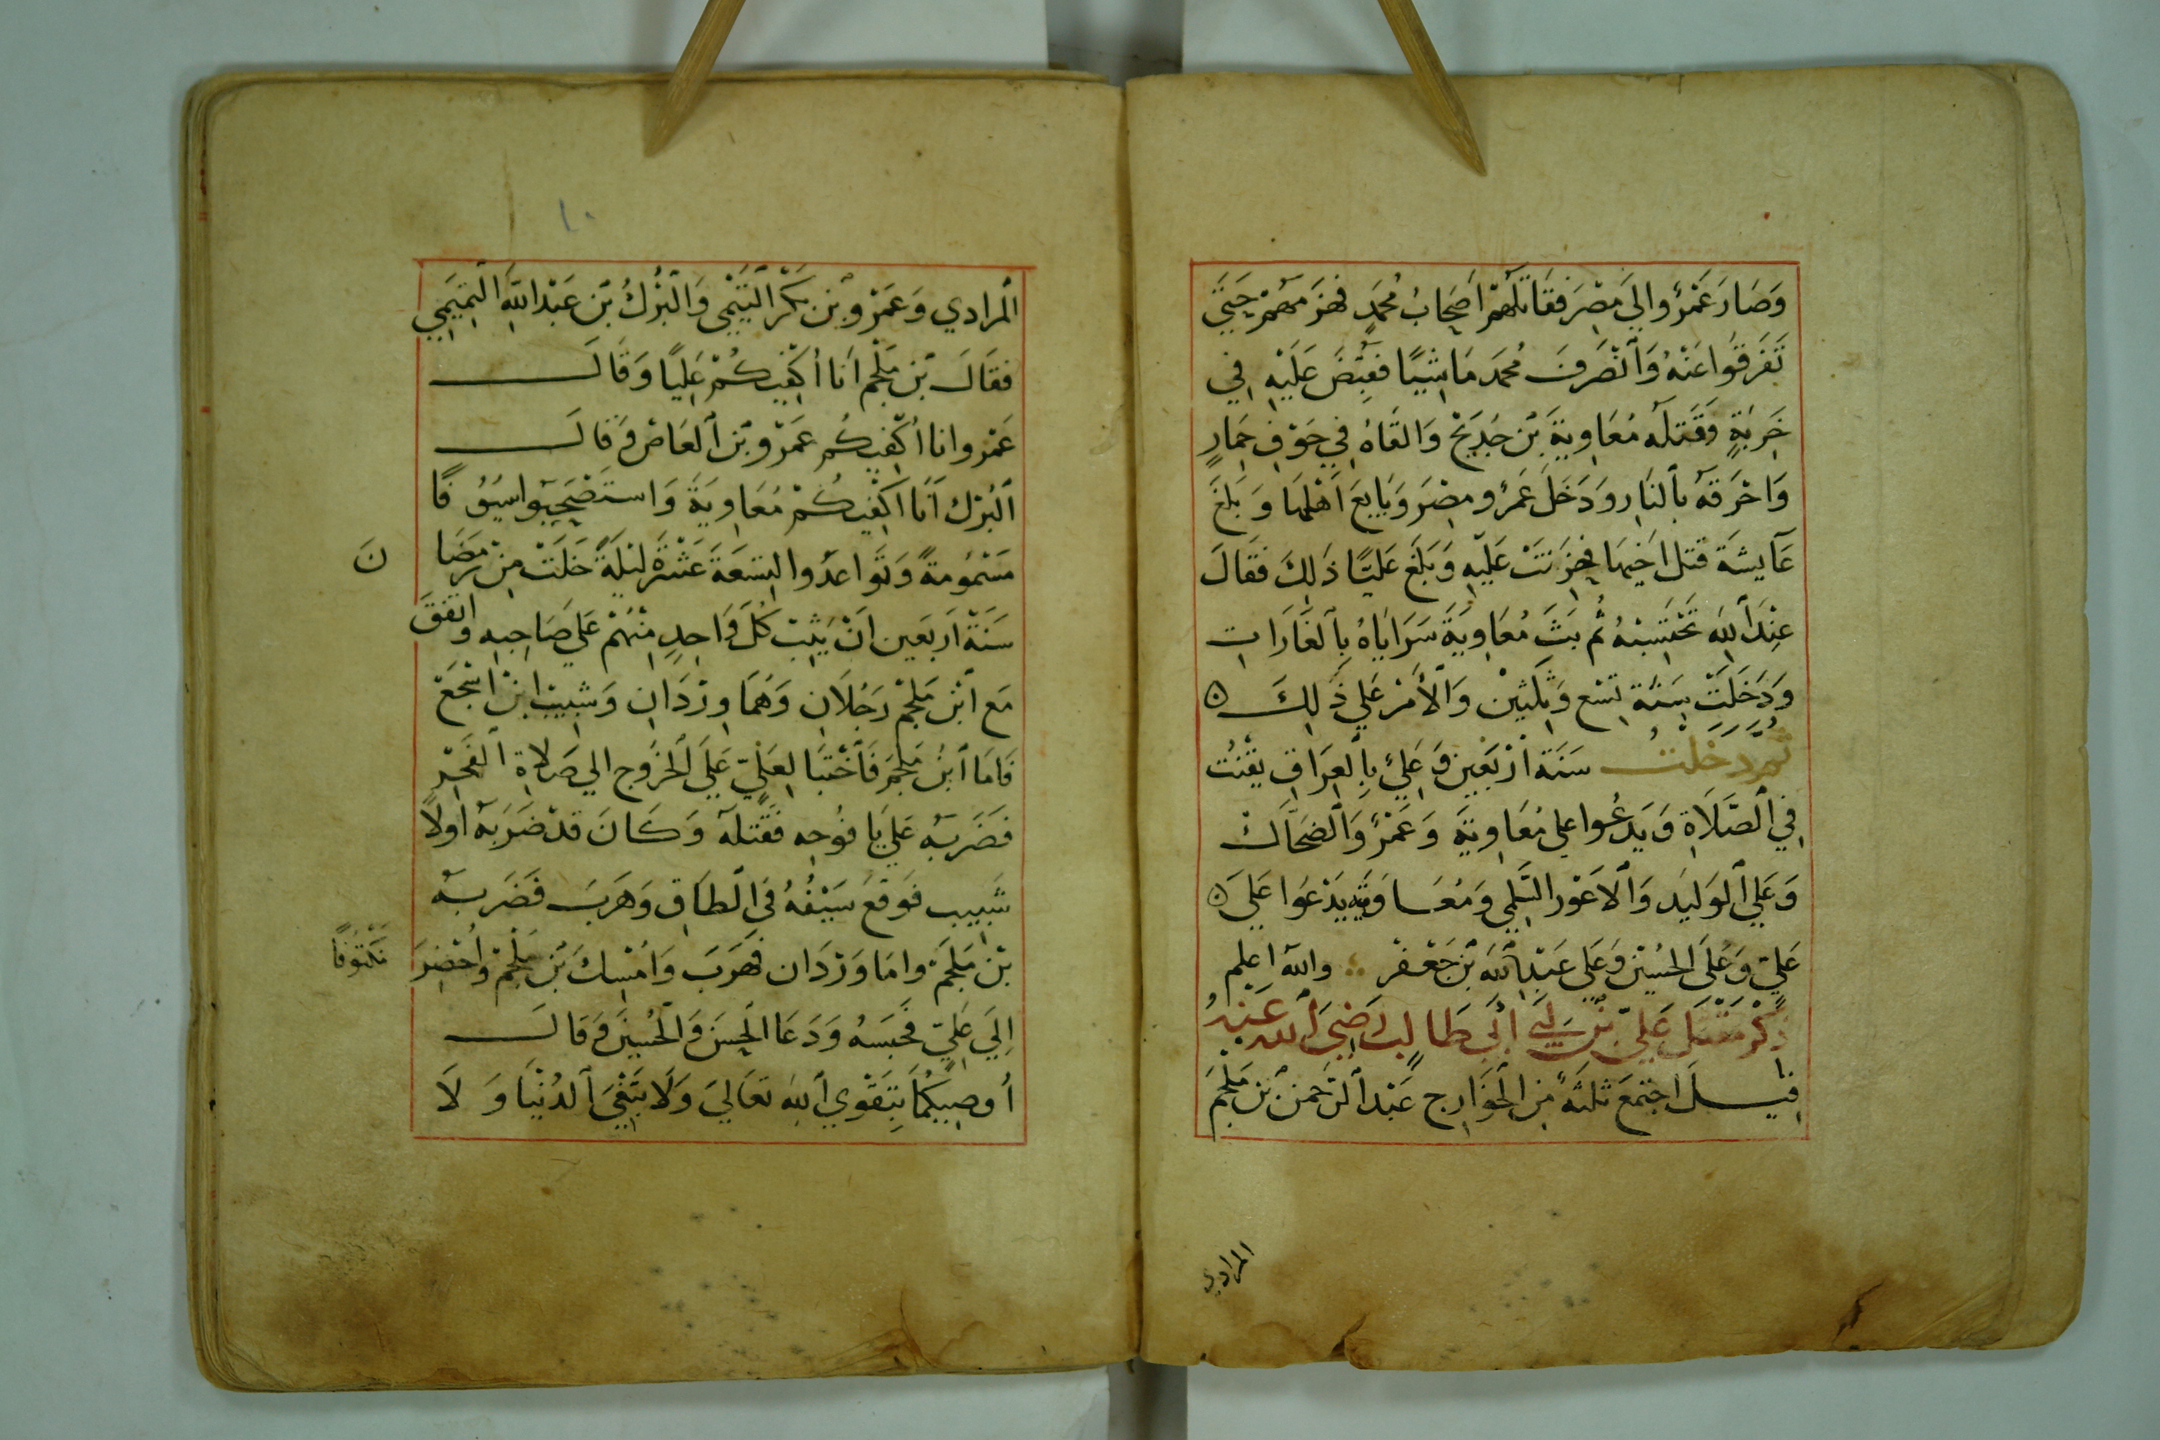 وَصَارَ عَمْرٌو الَى مِصْرَ فَقَاتَلَهُمْ اَصْحَابُ مُحَمَّدٍ فَهَزَمَهُمْ حَتَّى
تَفَرَّقُوا عَنْهُ وَٱنْصَرَفَ مُحَمَّد مَاشِيًا فَقُبِضَ عَلَيْهِ فِي
خَرِبَةٍ وَقَتَلَهُ مُعَاوِيَةَ بْنَ حُدَيْج وَالقَاهُ فِي جَوْفِ حِمَارٍ
وَاحْرَقَهُ بِٱلنَارِ وَدَخَلَ عَمْرٌو مِصْرَ وَبَايَعَ اَهْلَهَا وَبَلَغَ
عَآيشَةَ قَتل اَخِيهَا فَحَزِنَتْ عَلَيْهِ وَبَلَغَ عَلِيًّا ذَلِكَ فَقَالَ
عِنْدَ ٱللهِ نَحْتَسِبُهُ ثُمَّ بَثَّ مُعَاوِيَةَ سَرَايَاهُ بِٱلغَارَاتِ
وَدَخَلَتْ سَنَةِ تِسْع وَثَلَثِيْنَ وَالْأَمْرُ عَلَى ذَلِكَ ۞
ثُمَّ دَخَلَتْ سَنَة ارْبَعِينَ وَعَلِيٌ بِالعِرَاقِ يَقْنُت
فِي ٱلصَّلَاةِ وَيَدْعُوا على مُعَاوِيَة وَعَمْرٌ وَٱلضَحَّاكْ
وَعَلي ٱلوَليْد وَٱلاعْوَر السُّلَمي وَمُعَاوِيَة يَدْعَوا عَلَى ۞
عَليّ وَعَلَى الحُسَيْن وَعَلى عَبْدِ ٱللهِ بْن جَعْفَرْ واللهُ اعلم
ذكْر مَقْتَل عَلِيّ بْن اَبِي طَالِب رَضِيَ ٱللهُ عَنْهُ
قِيلَ اجْتَمَعَ ثَلثَةٌ مِن الخَوَارِج عَبْد ٱلرَحْمن بْن مَلْجَم
المرادي
المرادي وَعَمْرو بْن بَكْر التَيْمِي وَالبُرْكُ بْن عَبْد اللهِ التَّمِيمِي
فَقَالَ بْن مَلْجَم اَنَا اُكْفِيكُمْ عَلِيًا وَقَالَ
عَمْرو انا اُكْفِيكُم عَمْرو بْن ٱلعَاصْ وَقَالَ
ٱلبُرْك اَنَا اَكْفِيكُمْ مُعَاوِيَةَ وَاستَصْحَبُوا سُيُوفًا
مَسْمُومَةً وَتَوَاعَدُوا لِتِسْعَةَ عَشْرَة لَيْلَةً خَلَتْ مِنْ رَمَضَا
نَ
سَنَةَ اَرْبَعِين اَنْ يَثِبَ كُلّ وَاحِدٍ مِنْهُمْ عَلَى صَاحِبِهِ وَاتفَقَ
مَع ٱبْن مَلْجَمْ رَجُلَانِ وَهُمَا وِرْدَانِ وَشَبِيبْ ابْن اشْجَعْ
فَامَا ٱبْنُ مَلْجَمَ فَٱخْتَبَا لِعَلِيّ عَلَى ٱلخُرُوج الي صَلاةِ الفَجْرِ
فَضَرَبَهُ عَلى يَا فُوخِهِ فَقَتَلَهُ وَكَانَ قَدْ ضَرَبَهُ اولًا
شَبِيب فَوَقَعَ سَيْفُهُ فِي الطَاقِ وَهَرَبَ فَضَرَبَهُ
بْن مَلْجَمْ وامَا وَرْدَان فَهَرَبَ وَامْسِكَ بْن مَلْجَمْ وَاُحْضِرَ
مَكْتُوفًا
اِلَى عَلِيّ فَحَبَسَهُ وَدَعَا الحَسَنَ وَالحُسِينَ وَقَالَ
اُوصِيكُمَا بِتَقْوَي ٱللهِ تَعَالَى وَلَا تَبْغِيَ ٱلدُنْيَا وَلَا